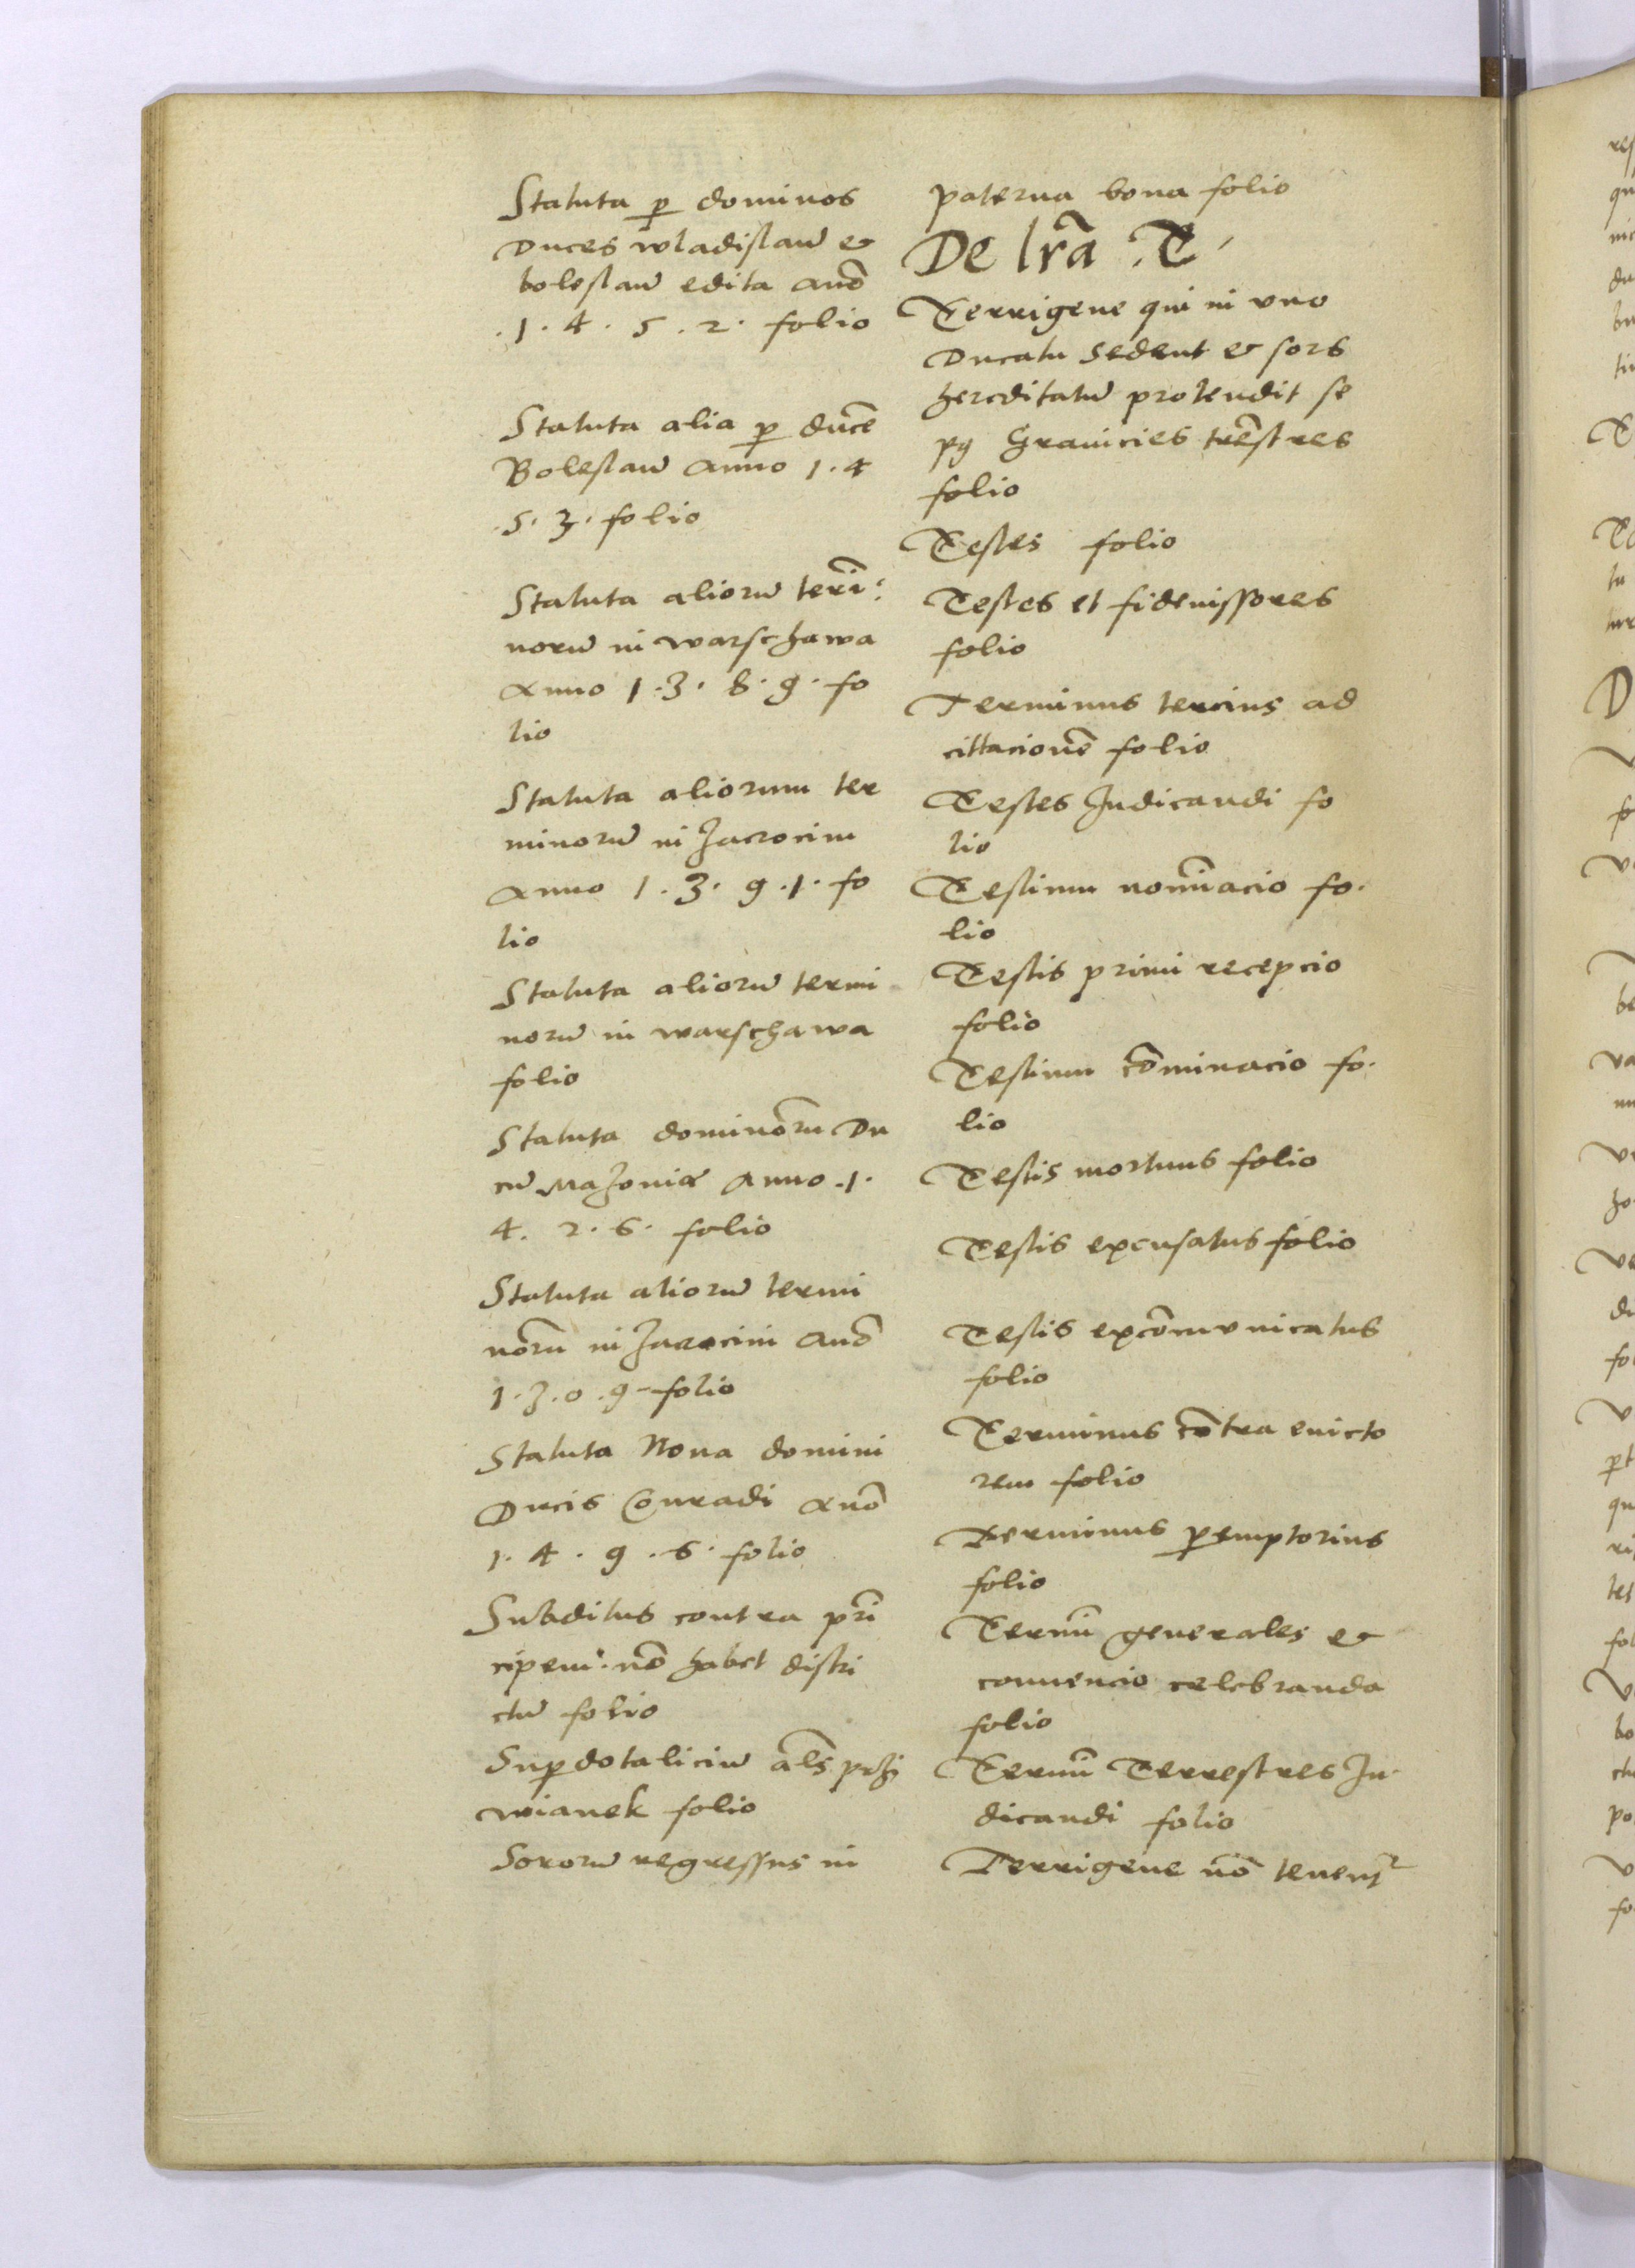 Statuta ꝑ dominos
Duces wladislaū &
boleslaū edita anō
.1.4.5.2. folio
Statuta alia ꝑ ducē
Boleslaū anno 1.4
.5.3. folio
Statuta aliorū termi:
norū in warschawa
Anno 1.3.8.9. fo
lio
Statuta aliorum ter
minorū in Zacrocim
Anno 1.3.9.1. fo
lio
Statuta aliorū termi
norū in warschawa
folio
Statuta dominorū Du
cū Mazoniæ Anno .1.
4.2.6. folio
Statuta aliorū termi
norū in Zacrocini anō
1.3.0.9 folio
Statuta Nova domini
Ducis Conradi Anō
1.4.9.6. folio
Subditus contra prī
cipem nō habet distri
ctū folio
Suꝑdotaliciū als przi
wianek folio
Sororū regressus in
paterna bona folio
De lrā .T.
Terrigene qui in vno
Ducatu sedent & sors
hereditatū protendit se
Granicies trēstres
folio
Testes folio
Testes et fideiussores
folio
Terminus tercius ad
cittacionē folio
Testes Iudicandi fo
lio
Testium nomīacio fo.
lio
Testis primi recepcio
folio
Testium cōminacio fo.
lio
Testis mortuus folio
Testis excusatus folio
Testis excōmunicatus
folio
Terminus cōtra euicto
rem folio
Terminus ꝑemptorius
folio
Termī generales &
conuencio celebranda
folio
Termī Terrestres Iu
dicandi folio
Terrigene nō tenent